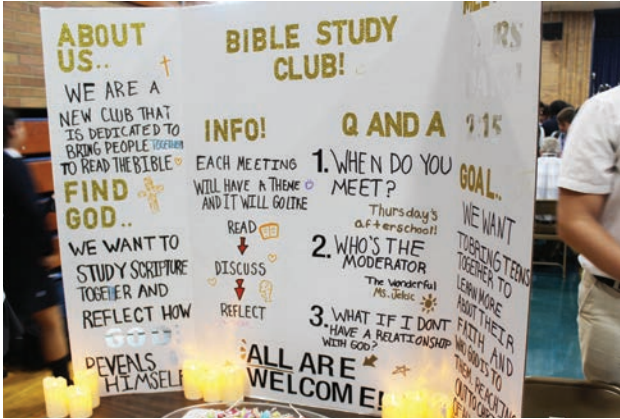 ABOUT
US..
WE ARE A
NEW CLUB THAT
IS DEDICATED TO
BRING PEOPLE TOGETHER
TO READ THE BIBLE
FIND
GOD..
WE WANT TO
STUDY SCRIPTURE
TOGETHER AND
REFLECT HOW
GOD
REVEALS
HIMSELF
BIBLE STUDY
CLUB!
INFO!
EACH MEETING
WILL HAVE A THEME
AND IT WILL GO LIKE
READ
DISCUSS
REFLECT
Q AND A
1. WHEN DO YOU
MEET?
Thursday's
afterschool!
2. WHO'S THE
MODERATOR
The Wonderful
Ms. Jelcic
3. WHAT IF I DONT
HAVE A RELATIONSHIP
WITH GOD?
ALL ARE
WELCOME!
GOAL..
WE WANT
TO BRING TEENS
TOGETHER TO
LEARN MORE
ABOUT THEIR
FAITH AND
WHO GOD IS TO
THEM. REACHING
OUT TO